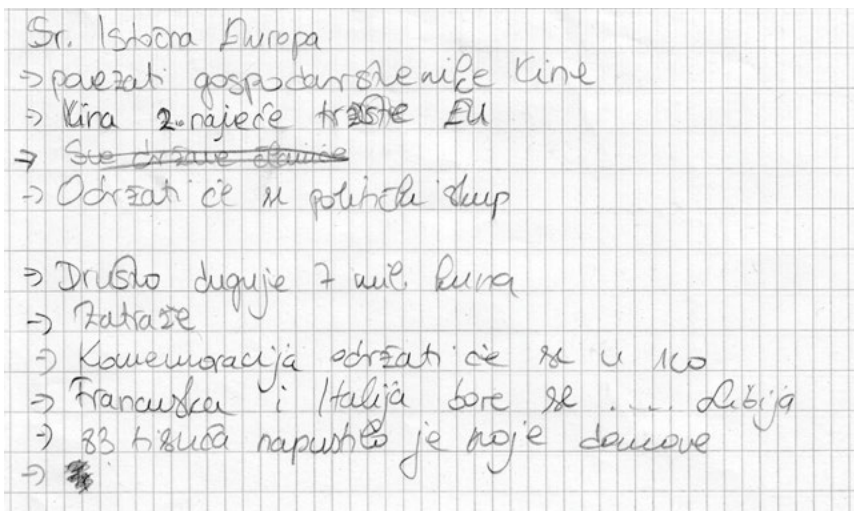 Sr. Istočna Europa
→ povezati gospodarstvenike Kine
→ Kina 2. najeće tržište EU
→ Sve države članice
→ Održati će se politički skup
→ Drušvo duguje 7 mil. kuna
→ Zatraže
→ Komemoracija održati će se u 100
→ Francuska i Italija bore se .... Libija
→ 83 tisuća napustilo je svoje domove
→